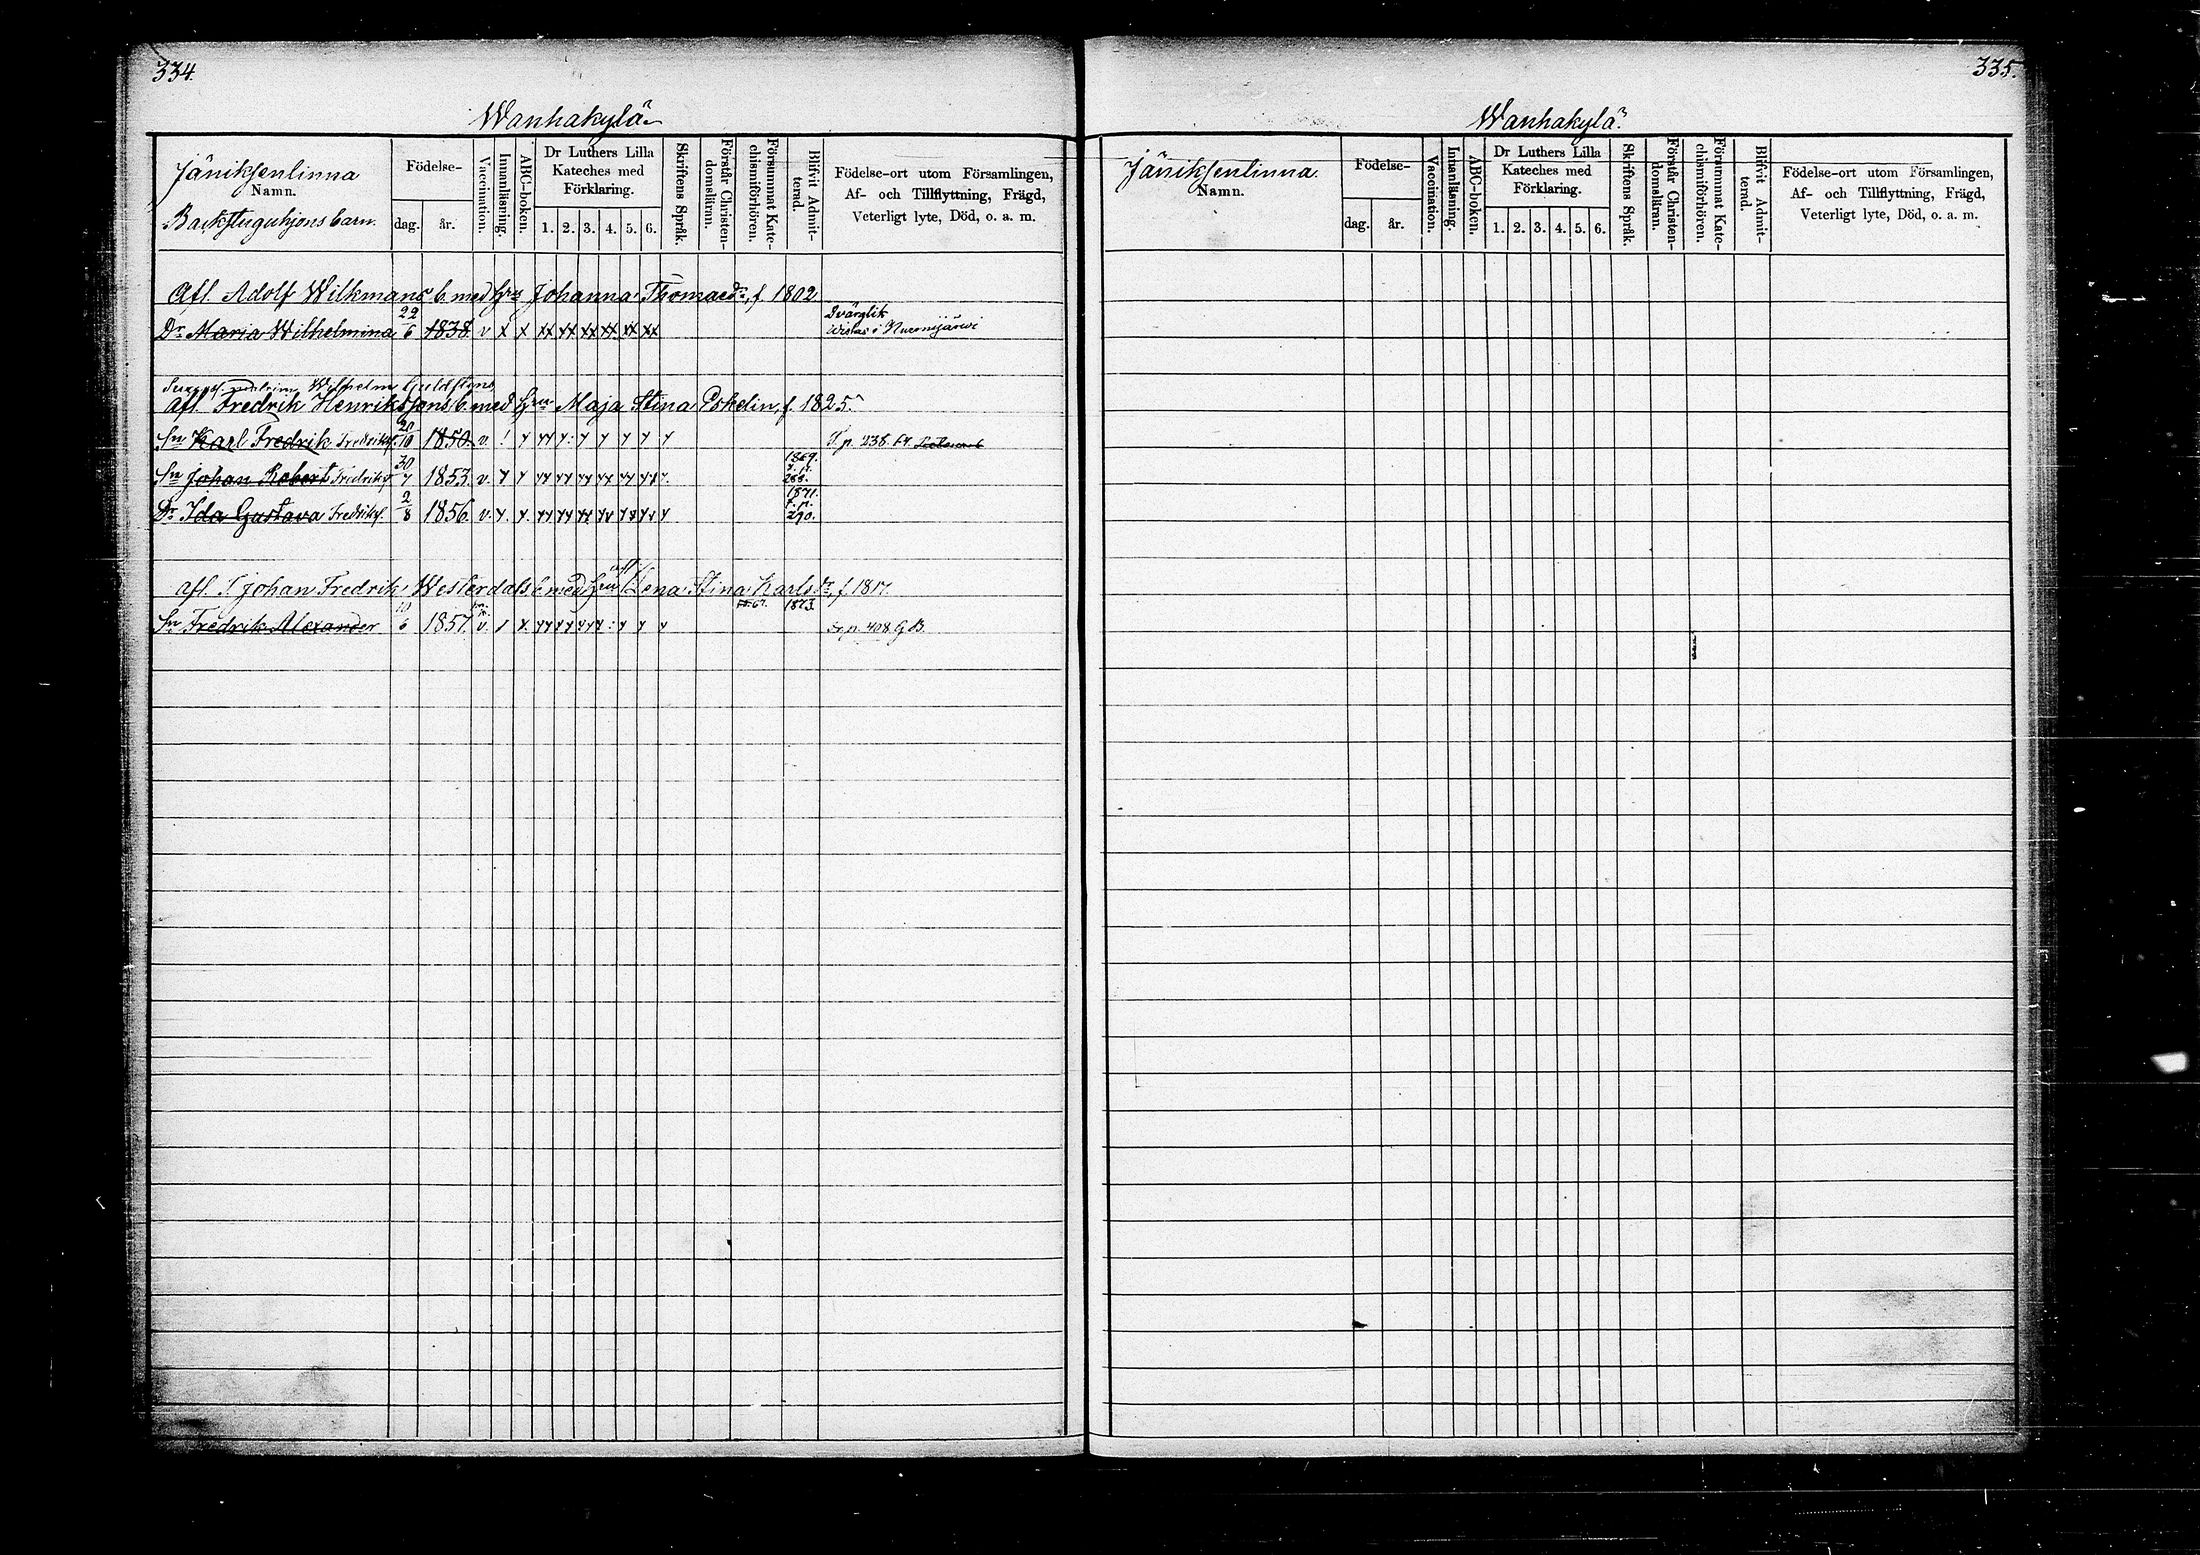 334.
Wanhakylä
Jäniksenlinna
Namn.
Backstuguhjons barn.
Födelse-
dag. år.
Vaccination.
Innanläsning.
ABC-boken.
Dr Luthers Lilla
Kateches med
Förklaring.
1. 2. 3. 4. 5. 6.
Skriftens Språk.
Förstår Christen-
domsläran.
Försummat Kate-
chismiförhören.
Blifvit Admit-
terad.
Födelse-ort utom Församlingen,
Af- och Tillflyttning, Frägd,
Veterligt lyte, Död, o. a. m.
Afl. Adolf Wilkmans b. med hru Johanna Thomaedr, f. 1802
Dr Maria Wilhelmina 22/6 1838. v x x xx xx xx xx xx xx Dvärglik
Wistas i Nurmijärvi
Wilhelm Guldstens
Afl. Fredrik Henrikssons b. med hru Maja Stina Eskelin, f. 1825.
Sn Karl Fredrik Fredriksf. 20/10 1850. v. p. 238.
Sn Johan Robert Fredriksf. 30/7 1853. v. 1869. 288.
Dr Ida Gustava Fredriksf. 2/8 1856. v. 1871. 290.
Afl. S. Johan Fredrik Westerdals b. med hru Lena Stina Karlsdr, f. 1817.
Sn Fredrik Alexander 10/6 1857. v. 67. 1873. p. 408 G. B.
335.
Wanhakylä
Jäniksenlinna.
Namn.
Födelse-
dag. år.
Vaccination.
Innanläsning.
ABC-boken.
Dr Luthers Lilla
Kateches med
Förklaring.
1. 2. 3. 4. 5. 6.
Skriftens Språk.
Förstår Christen-
domsläran.
Försummat Kate-
chismiförhören.
Blifvit Admit-
terad.
Födelse-ort utom Församlingen,
Af- och Tillflyttning, Frägd,
Veterligt lyte, Död, o. a. m.